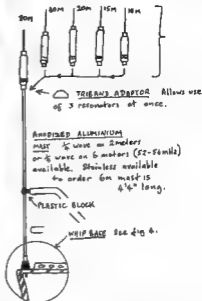 80M 40M 20M 15M 10M
TRIBAND ADAPTOR Allows use
of 3 resonators at once.
ANODIZED ALUMINIUM
MAST ½ wave on 2 meters
wave on 6 meters (52-54MHz)
available. Stainless available
to order 6m mast is
4'4" long.
PLASTIC BLOCK
WHIP BASE See fig 4.